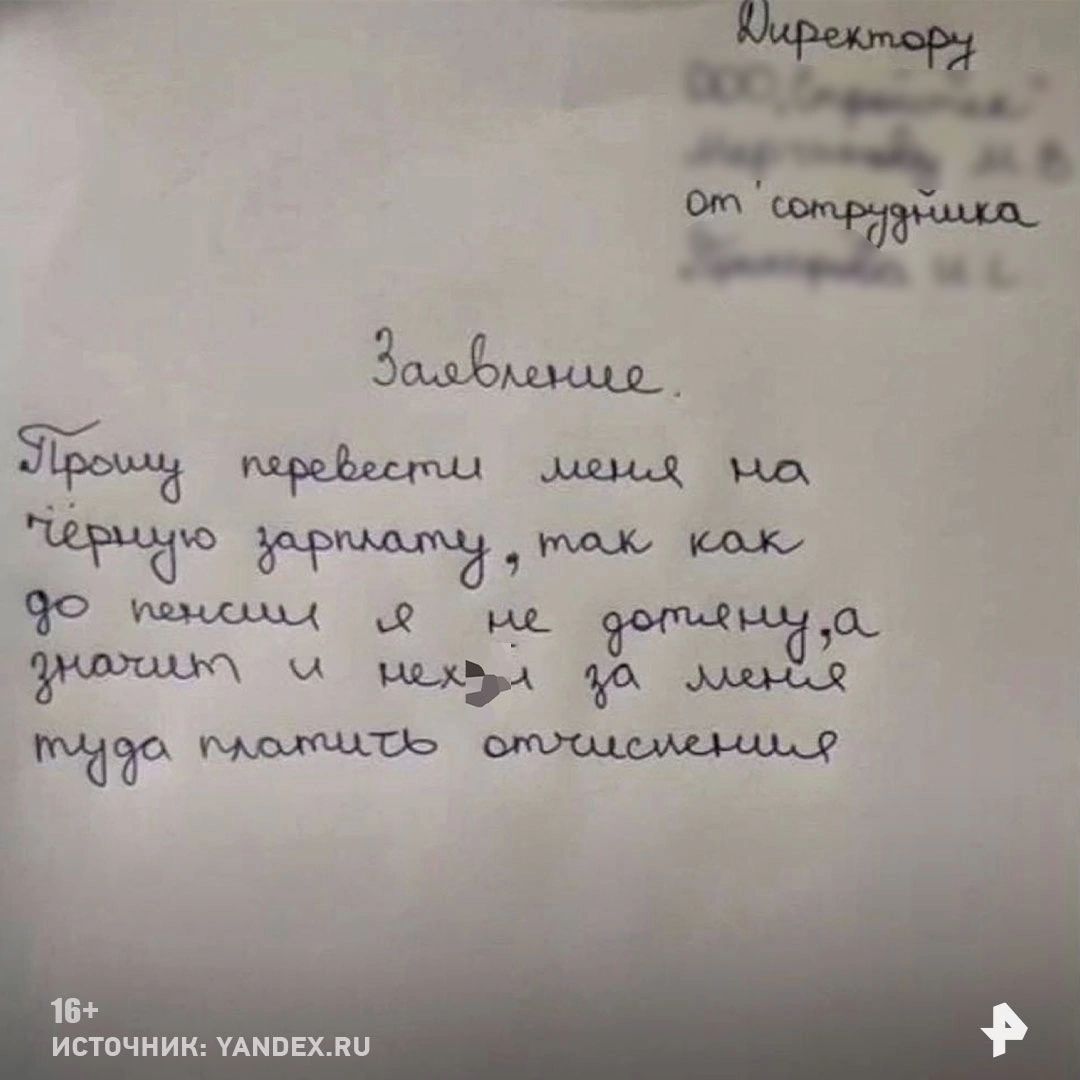 Директору
от сотрудника
Заявление.
Прошу перевести меня на
чёрную зарплату, так как
до пенсии я не дотяну, а
значит и за меня
туда платить отчисления
16+
ИСТОЧНИК: YANDEX.RU